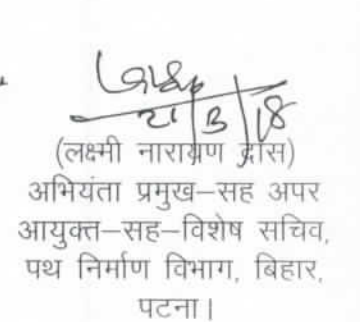 21/3/18
(लक्ष्मी नारायण दास)
अभियंता प्रमुख–सह अपर
आयुक्त–सह–विशेष सचिव,
पथ निर्माण विभाग, बिहार,
पटना।